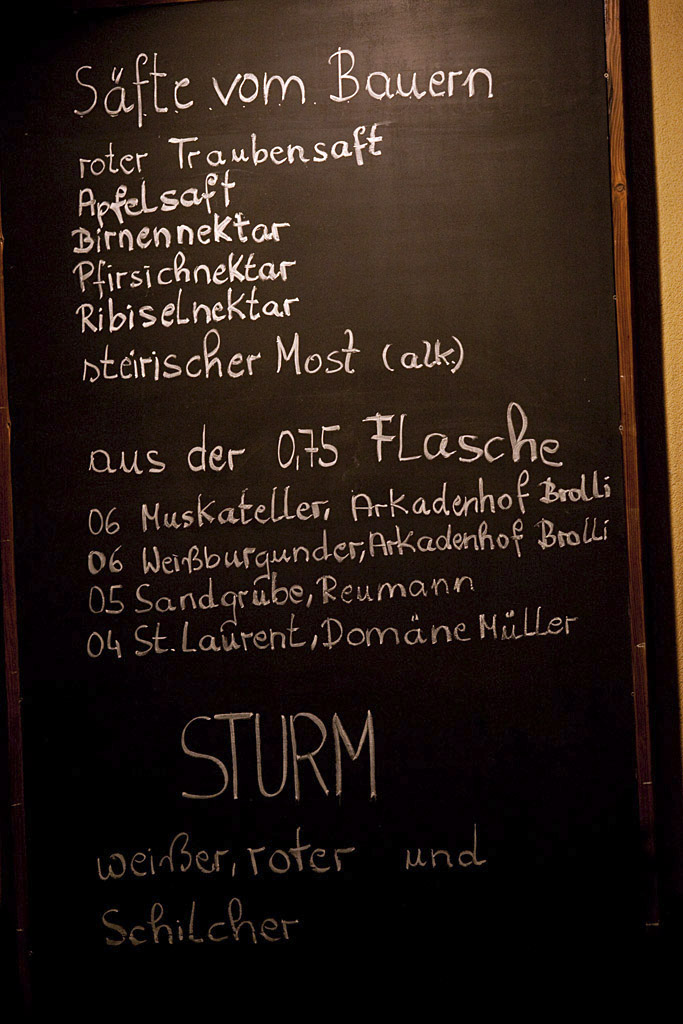 Säfte vom Bauern
roter Traubensaft
Apfelsaft
Birnennektar
Pfirsichnektar
Ribiselnektar
steirischer Most (alk.)
aus der 0,75 Flasche
06 Muskateller, Arkadenhof Brolli
06 Weißburgunder, Arkadenhof Brolli
05 Sandgrube, Reumann
04 St. Laurent, Domäne Müller
STURM
weißer, roter und
Schilcher